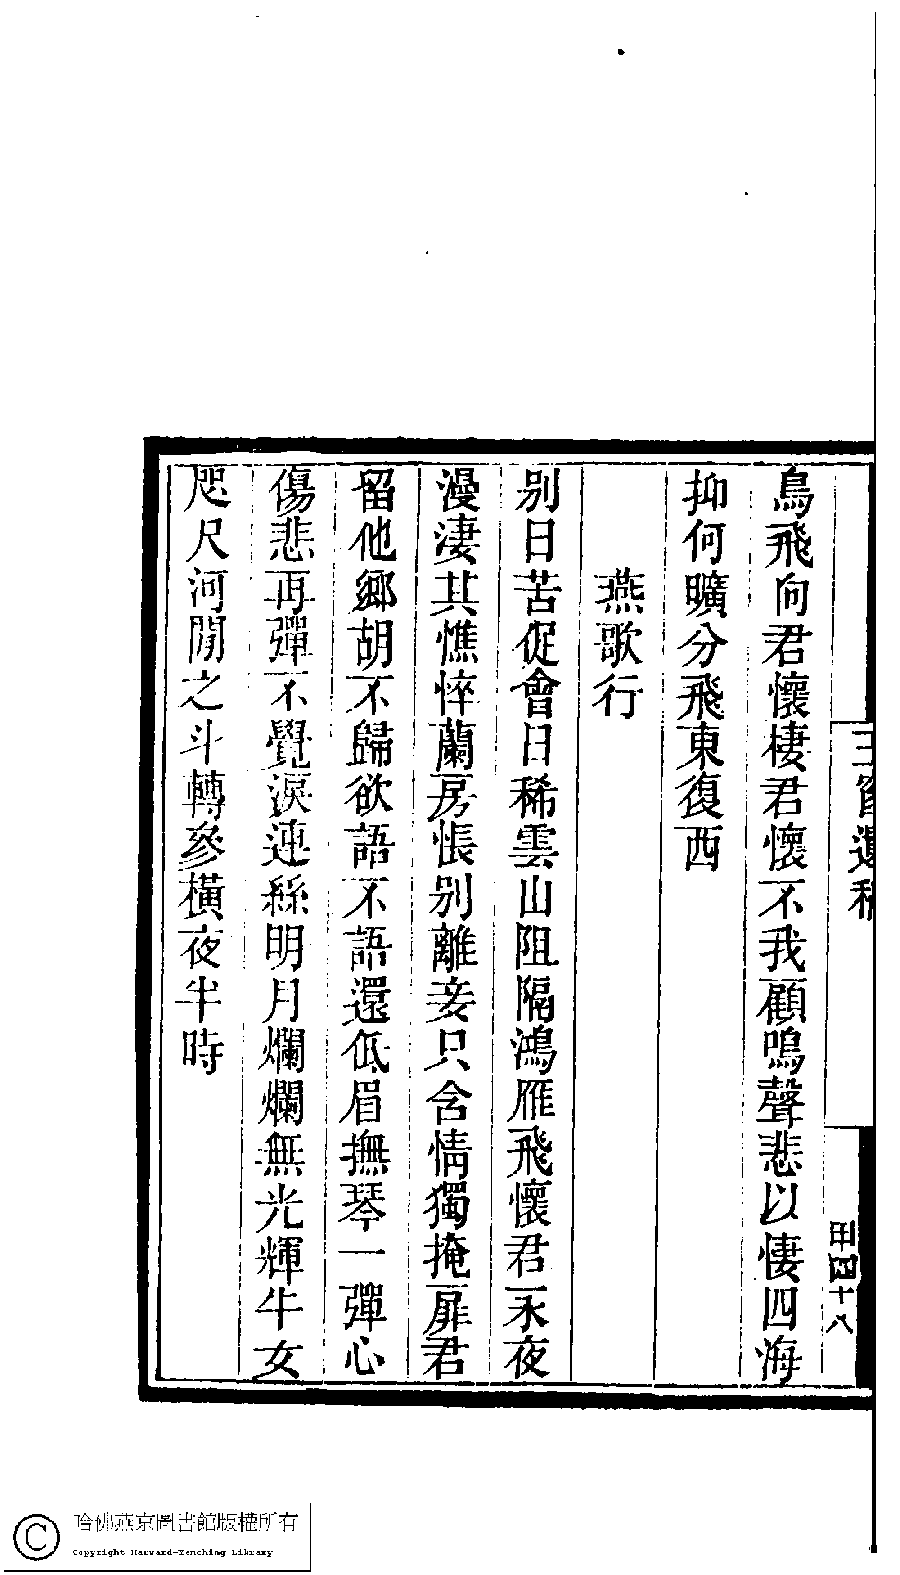 鳥飛向君懷棲君懷不我顧鳴聲悲以悽四海
抑何曠分飛東復西
燕歌行
別日苦促會日稀雲山阻隔鴻雁飛懷君一永夜
漫淒其憔悴蘭房悵別離妾只含情獨掩扉君
留他鄉胡不歸欲語不語還低眉撫琴一彈心
傷悲再彈不覺淚連絲明月爛爛無光輝牛女
咫尺河間之斗轉參橫夜半時
遺稿
甲四十八
哈佛燕京圖書館版權所有
Copyright Harvard-Yenching Library